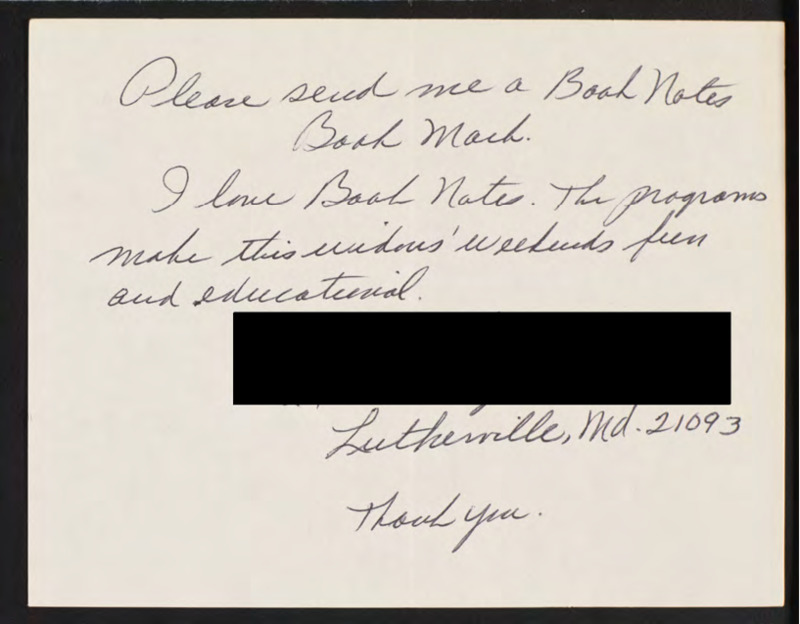 Please send me a Book Notes
Book Mark.
I love Book Notes. The programs
make this widows' weekends fun
and educational.
Lutherville, Md. 21093
Thank you.